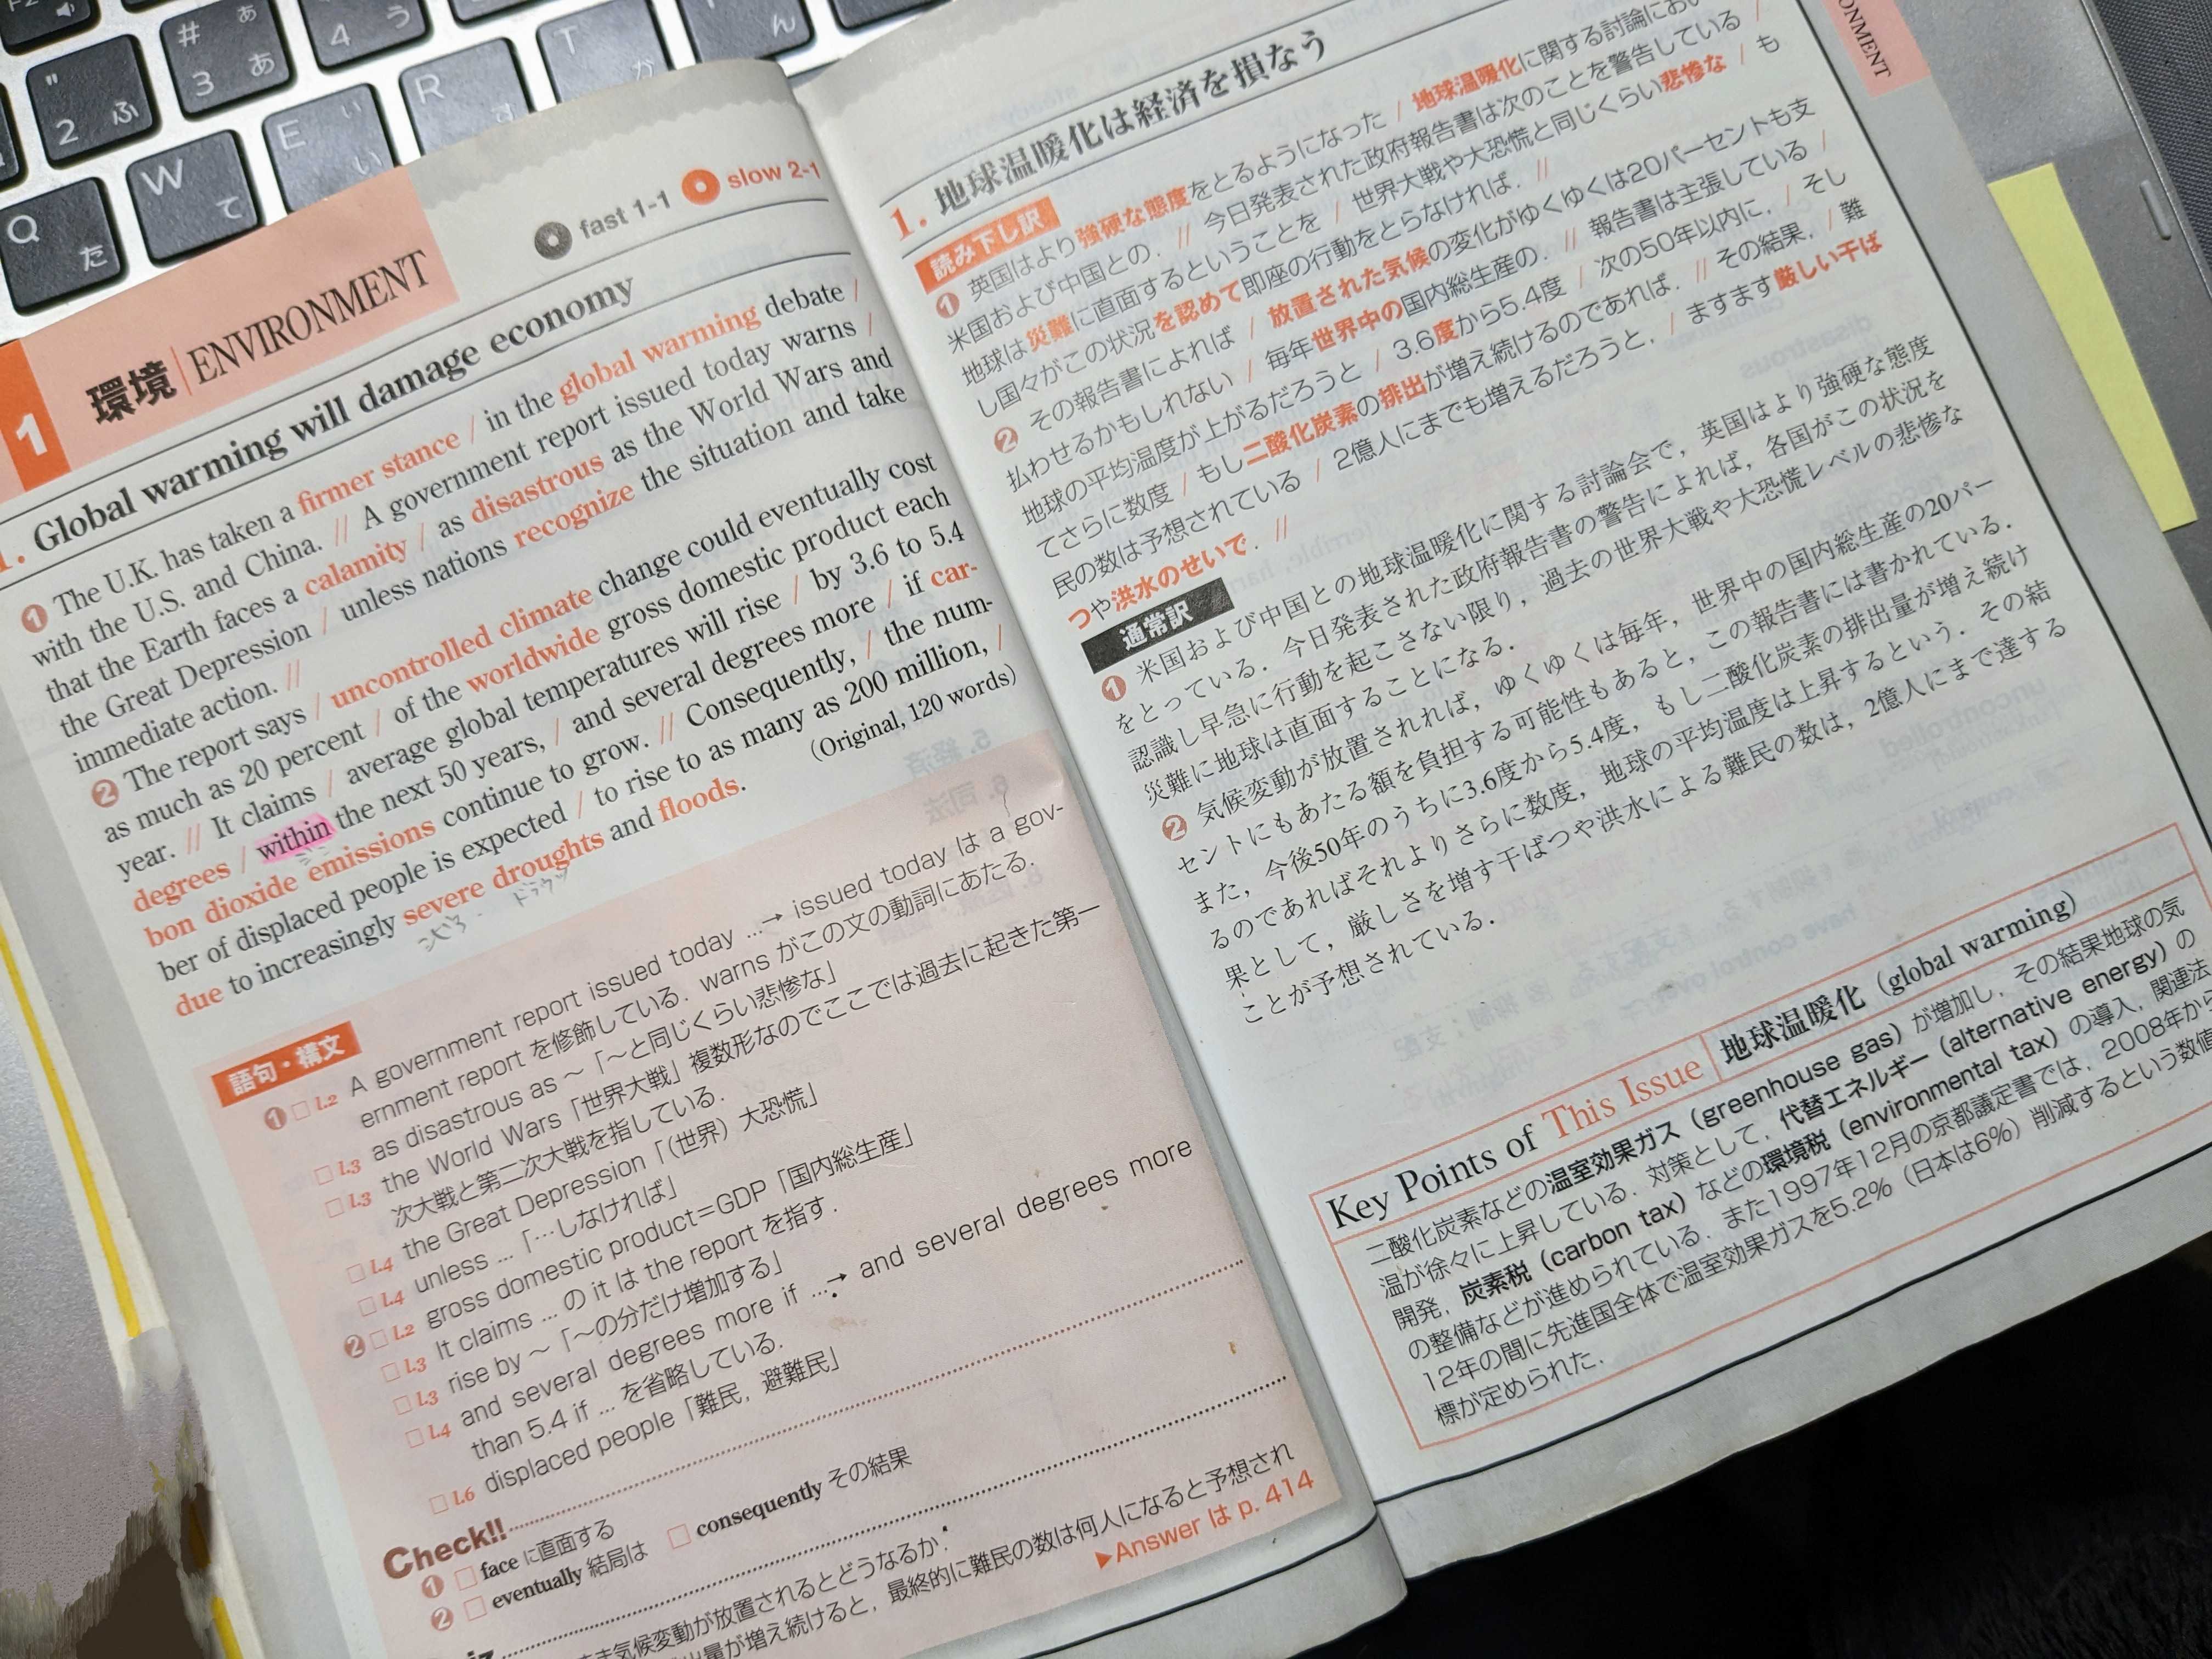 #
あ
3
あ
4
う
"
2
ふ
Q
た
W
て
E
い
い
R
す
T
か
ん
1
環境 | ENVIRONMENT
fast 1-1 slow 2-1
1. Global warming will damage economy
❶ The U.K. has taken a firmer stance / in the global warming debate /
with the U.S. and China. // A government report issued today warns /
that the Earth faces a calamity / as disastrous as the World Wars and
the Great Depression / unless nations recognize the situation and take
immediate action. //
❷ The report says / uncontrolled climate change could eventually cost
as much as 20 percent / of the worldwide gross domestic product each
year. // It claims / average global temperatures will rise / by 3.6 to 5.4
degrees / within the next 50 years, / and several degrees more / if car-
bon dioxide emissions continue to grow. // Consequently, / the num-
ber of displaced people is expected / to rise to as many as 200 million, /
due to increasingly severe droughts and floods.
(Original, 120 words)
語句・構文
❶ □ l.2 A government report issued today ... → issued today は a gov-
ernment report を修飾している. warns がこの文の動詞にあたる.
□ l.3 as disastrous as ~「~と同じくらい悲惨な」
□ l.3 the World Wars「世界大戦」複数形なのでここでは過去に起きた第一
次大戦と第二次大戦を指している.
□ l.4 the Great Depression「(世界)大恐慌」
□ l.4 unless ...「…しなければ」
❷ □ l.2 gross domestic product=GDP「国内総生産」
□ l.3 It claims ... の it は the report を指す.
□ l.3 rise by ~「~の分だけ増加する」
□ l.4 and several degrees more if ... → and several degrees more
than 5.4 if ... を省略している.
□ l.6 displaced people「難民, 避難民」
Check!!
❶ □ face に直面する
❷ □ eventually 結局は □ consequently その結果
ま気候変動が放置されるとどうなるか.
量が増え続けると, 最終的に難民の数は何人になると予想され
▶Answer は p. 414
ONMENT
1. 地球温暖化は経済を損なう
読み下し訳
❶ 英国はより強硬な態度をとるようになった / 地球温暖化に関する討論におい
米国および中国との. // 今日発表された政府報告書は次のことを警告している /
地球は災難に直面するということを / 世界大戦や大恐慌と同じくらい悲惨な / も
し国々がこの状況を認めて即座の行動をとらなければ. //
❷ その報告書によれば / 放置された気候の変化がゆくゆくは20パーセントも支
払わせるかもしれない / 毎年世界中の国内総生産の. // 報告書は主張している /
地球の平均温度が上がるだろうと / 3.6度から5.4度 / 次の50年以内に, / そし
てさらに数度 / もし二酸化炭素の排出が増え続けるのであれば. // その結果, / 難
民の数は予想されている / 2億人にまでも増えるだろうと, / ますます厳しい干ば
つや洪水のせいで. //
通常訳
❶ 米国および中国との地球温暖化に関する討論会で, 英国はより強硬な態度
をとっている. 今日発表された政府報告書の警告によれば, 各国がこの状況を
認識し早急に行動を起こさない限り, 過去の世界大戦や大恐慌レベルの悲惨な
災難に地球は直面することになる.
❷ 気候変動が放置されれば, ゆくゆくは毎年, 世界中の国内総生産の20パー
セントにもあたる額を負担する可能性もあると, この報告書には書かれている.
また, 今後50年のうちに3.6度から5.4度, もし二酸化炭素の排出量が増え続け
るのであればそれよりさらに数度, 地球の平均温度は上昇するという. その結
果として, 厳しさを増す干ばつや洪水による難民の数は, 2億人にまで達する
ことが予想されている.
Key Points of This Issue | 地球温暖化 (global warming)
二酸化炭素などの温室効果ガス (greenhouse gas) が増加し, その結果地球の気
温が徐々に上昇している. 対策として, 代替エネルギー (alternative energy) の
開発, 炭素税 (carbon tax) などの環境税 (environmental tax) の導入, 関連法
の整備などが進められている. また1997年12月の京都議定書では, 2008年から
12年の間に先進国全体で温室効果ガスを5.2% (日本は6%) 削減するという数値
標が定められた.